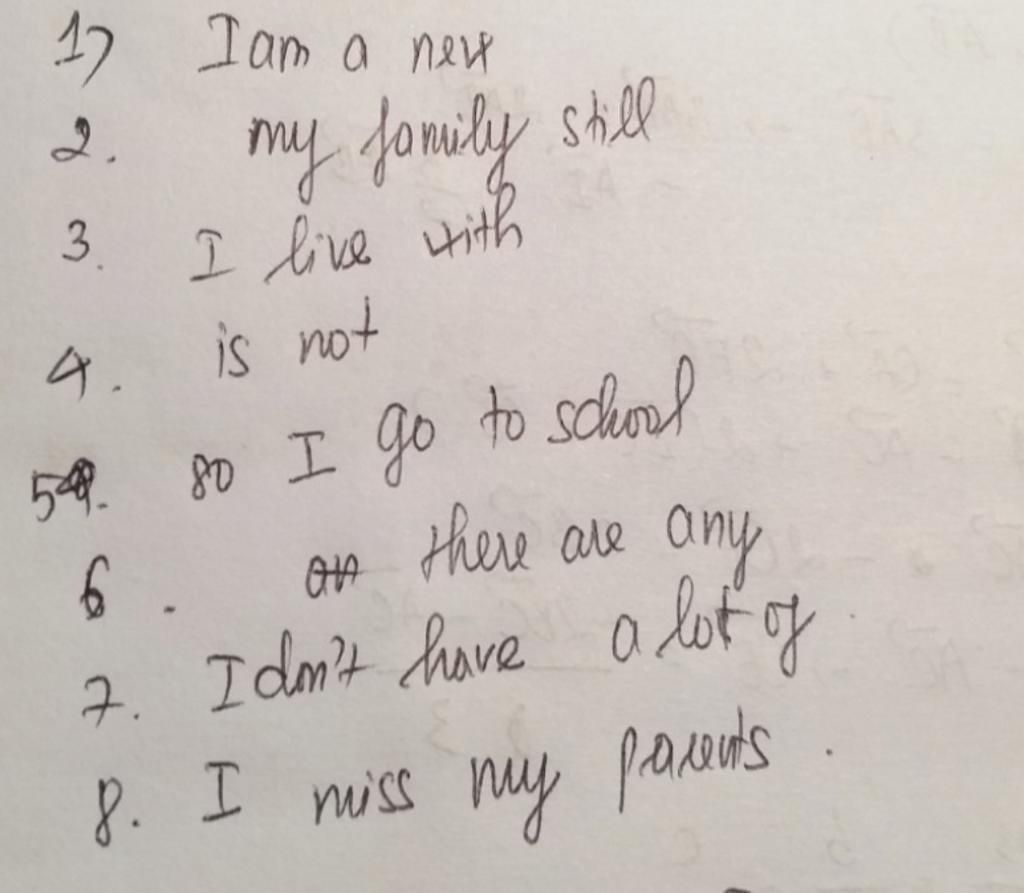 1) I am a new
2. my family still
3. I live with
4. is not
5. so I go to school
6. there are any
7. I don't have a lot of
8. I miss my parents.